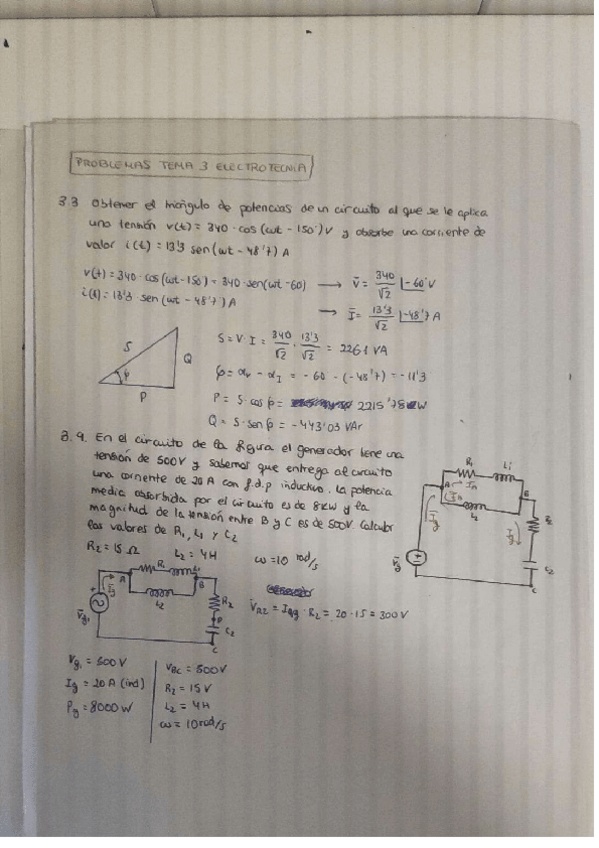 PROBLEMAS TEMA 3 ELECTROTECNIA
3.3 Obtener el triángulo de potencias de un circuito al que se le aplica
una tensión v(t) = 340 · cos (ωt - 150°) V y absorbe una corriente de
valor i(t) = 13'3 sen (ωt - 48'7) A
v(t) = 340 · cos (ωt - 150) = 340 · sen (ωt - 60) → V̄ = 340/√2 |-60° V
i(t) = 13'3 · sen (ωt - 48'7) A
→ Ī = 13'3/√2 |-48'7 A
S
φ
Q
P
S = V · I = 340/√2 · 13'3/√2 = 2261 VA
φ = αv - αI = -60 - (-48'7) = -11'3
P = S · cos φ = 2215'78 W
Q = S · sen φ = -443'03 VAr
3.9. En el circuito de la figura el generador tiene una
tensión de 500V y sabemos que entrega al circuito
una corriente de 20 A con f.d.p inductivo. La potencia
media absorbida por el circuito es de 8kW y la
magnitud de la tensión entre B y C es de 500V. Calcular
los valores de R₁, L₁ y C₂
R₂ = 15 Ω L₂ = 4H ω = 10 rad/s
R₁
L₁
A
B
L₂
Īg
R₂
C₂
C
V̄g
R₁
A
B
L₂
Īg
R₂
P
C₂
C
V̄g₁
V̄R2 = Ig · R₂ = 20 · 15 = 300 V
Vg₁ = 500 V
Ig = 20 A (ind)
Pg = 8000 W
VBC = 500V
R₂ = 15 V
L₂ = 4H
ω = 10 rad/s